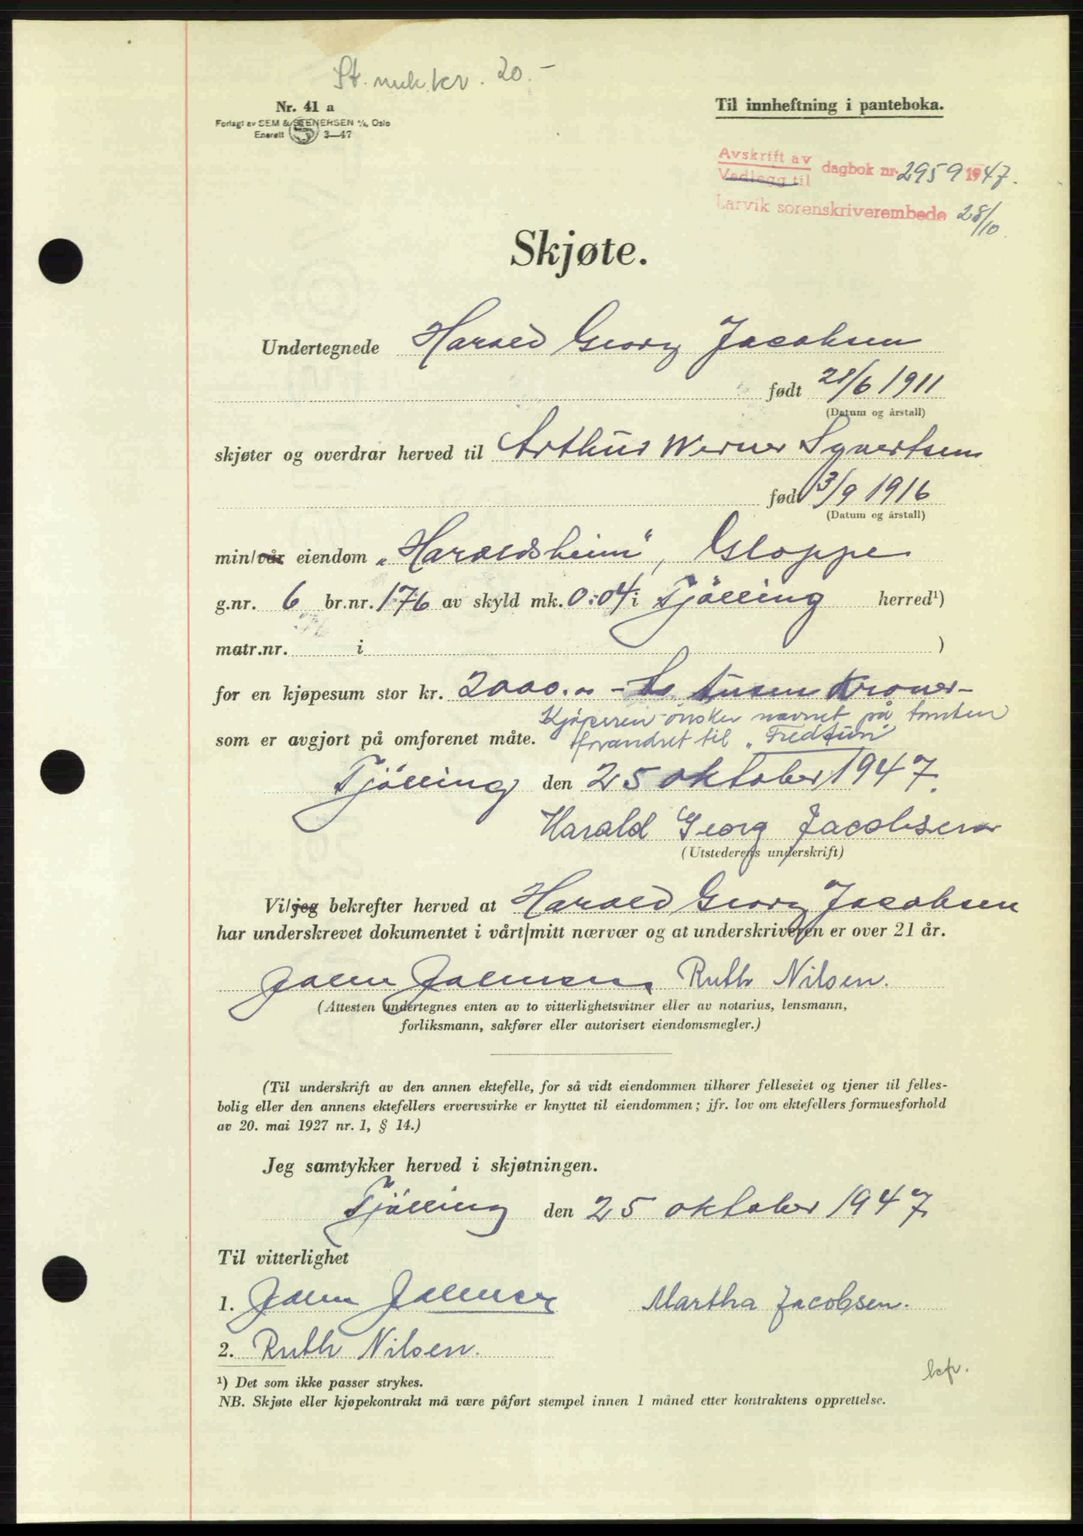 St. merk. kr. 20.-
Nr. 41 a
Forlagt av SEM & STENERSEN A/S, Oslo
Enerett 3—47
Til innheftning i panteboka.
Avskrift av
Vedlegg til dagbok nr. 2959 1947.
Larvik sorenskriverembede 28/10
Skjøte.
Undertegnede Harald Georg Jacobsen
født 28/6 1911
(Datum og årstall)
skjøter og overdrar herved til Arthur Werner Syvertsen
født 3/9 1916
(Datum og årstall)
min/vår eiendom „Haraldsheim", Gloppe
g.nr. 6 br.nr. 176 av skyld mk. 0:04 i Tjölling herred¹)
matr.nr. i )
for en kjøpesum stor kr. 2000.00 - To tusen kroner -
Kjøperen ønsker navnet på tomten
som er avgjort på omforenet måte. forandret til „Fredtun"
Tjölling den 25 oktober 1947.
Harald Georg Jacobsen
(Utstederens underskrift)
Vi/jeg bekrefter herved at Harald Georg Jacobsen
har underskrevet dokumentet i vårt/mitt nærvær og at underskriveren er over 21 år.
Ruth Nilsen.
(Attesten undertegnes enten av to vitterlighetsvitner eller av notarius, lensmann,
forliksmann, sakfører eller autorisert eiendomsmegler.)
(Til underskrift av den annen ektefelle, for så vidt eiendommen tilhører felleseiet og tjener til felles-
bolig eller den annens ektefellers ervervsvirke er knyttet til eiendommen; jfr. lov om ektefellers formuesforhold
av 20. mai 1927 nr. 1, § 14.)
Jeg samtykker herved i skjøtningen.
Tjölling den 25 oktober 1947
Til vitterlighet
1. Martha Jacobsen.
2. Ruth Nilsen.
¹) Det som ikke passer strykes.
NB. Skjøte eller kjøpekontrakt må være påført stempel innen 1 måned etter kontraktens opprettelse.